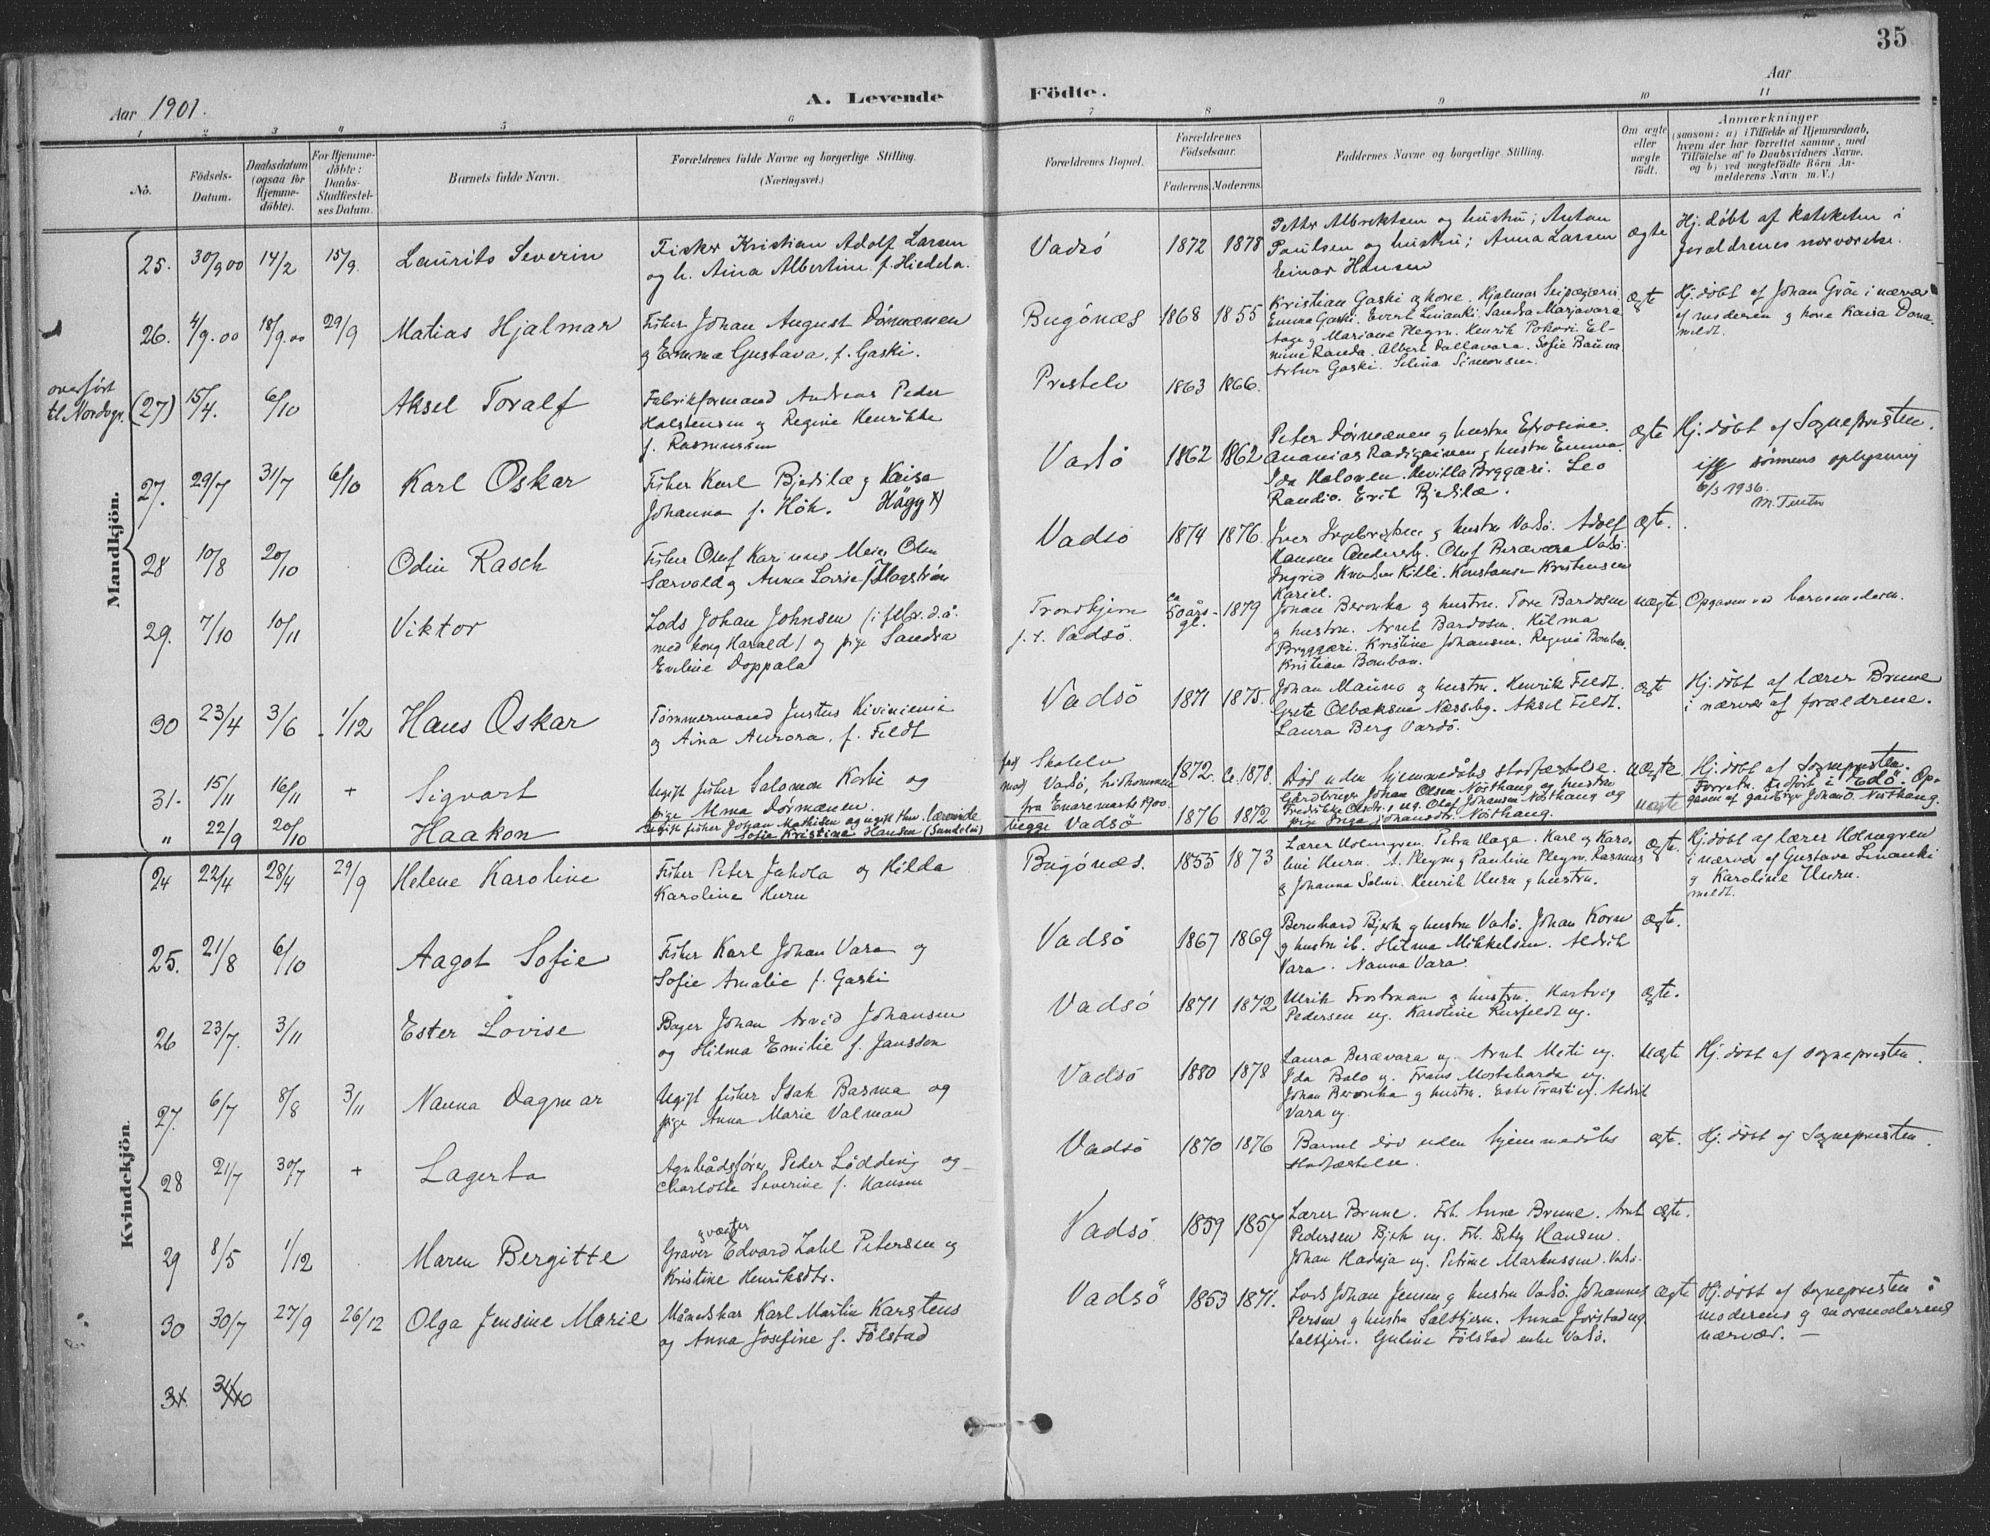 35
Aar 1901.
A. Levende
Födte.
Aar
1 2 3 4 5 6 7 8 9 10 11
No.
Födsels-
Datum.
Daabsdatum
(ogsaa for
Hjemme-
döbte).
For Hjemme-
döbte:
Daabs-
Stadfæstel-
ses Datum.
Barnets fulde Navn.
Forældrenes fulde Navne og borgerlige Stilling.
(Næringsvei.)
Forældrenes Bopæl.
Forældrenes
Födselsaar.
Faderens. Moderens.
Faddernes Navne og borgerlige Stilling.
Om ægte
eller
uægte
födt.
Anmærkninger
(saasom: a) i Tilfælde af Hjemmedaab,
hvem der har forrettet samme, med
Tilföielse af to Daabsvidners Navne.
og b) ved uægtefödte Börn An-
melderens Navn m. V.)
Mandkjön.
25. 30/9 00 14/2 15/9. Laurits Severin
Fisker Kristian Adolf Larsen
og h. Aina Albertine f. Hiedela.
Vadsö 1872 1878
Petter Albrektsen og hustru; Anton
Paulsen og hustru; Anna Larsen
Einar Hansen
ægte
Hj. döbt af kateketen i
foraldrenes nærværelse.
26. 4/9.00 18/9.00 29/9 Matias Hjalmar
Fisker Johan August Dörmænen
g Emma Gustava, f. Gaski.
Bugönæs 1868 1855
Kristian Gaski og kone. Hjalmar
Emma Gaski. Evert Linanki. Sandra Marjavara
Aage g Mariane Plegm. Henrik Pokori. El-
mine Randa. Albert Dallavara. Sofie Bauna
Artur Gaski. Selina Simonsen.
ægte
Hj. döbt af Johan Gröe i nærvær
af moderen og kone Kaisa Dona.
meldt.
overført
til Nordvgr. (27) 15/4. 6/10 Aksel Toralf
Fabrikformand Andreas Peder
Halstensen og Regine Henrikke
f. Rasmussen
Prestelv 1863 1866.
27. 29/7 31/7 6/10 Karl Oskar
Fisker Karl Bjedilæ g Kaisa
Johanna f. Hök. Hägg x)
Vadsö 1862 1862
Peter Dörmænen g hustru Efrosine.
Ananias Radigainen g hustru Emma.
Ida Halonen. Bryggari. Leo
Randio. Erik Bjedilæ.
ægte
Hj. döbt af Sognepresten.
iflg sönnens oplysning
6/3 1936.
28 10/8 20/10 Odin Rasch
Fisker Oluf Karinus Meier Olsen
Særvold g Anna Lovise f. Hagström
Vadsö 1874 1876.
Iver Ingebrigtsen g hustru Vadsö. Adolf
Hansen Andersby. Oluf Beravara Vadsö.
Ingrid Knudsen Killi. Konstanse Kristensen
Kariel.
ægte.
29. 7/10 10/11 Viktor
Lods Johan Johnsen
med kong Harald) og pige Sandra
Eveline Doppala
Trondhjem
f. t. Vadsö.
ca
50 års-
gl. 1879
Johan Beronka g hustru. Tore Bardosen
g hustru. Arnt Bardosen. Hilma
Bryggæri. Kristine Johansen. Regine Bomban.
Kristian Bomban.
uægte
Opgaven ved barnemoderen.
30 23/4 3/6 1/12 Hans Oskar
Tömmermand Justus Kiviniemi
og Aina Aurora, f. Feldt
Vadsö 1871 1875.
Johan Mauno g hustru. Henrik Feldt.
Grete Olbæksen Næssby. Aksel Feldt.
Laura Berg Vardö.
ægte
Hj. döbt af lærer Brune
i nærvær af forældrene.
31. 15/11 16/11 + Sigvart
Ugift fisker Salomon Korbi og
pige Alma Dörmænen.
fad Skalelv
mod Vadsö, hidkommen
fra Enaremarks 1900. 1872. Ca. 1878.
Död uden hjemmedåbs stadfæstelse.
uægte
Hj. döbt af Sognepresten.
" 22/9 20/10 Haakon
Ugift fisker Johan Mathisen og ugift
Sofie Kristina Hansen (Sundelin)
begge Vadsö 1876 1872
Gårdbruger Johan Olsen Nösthaug og hustru
Fredrikke Olsdtr; ug. Olaf Johansen Nösthaug og
pige Inga Johansdtr. Nösthaug.
uægte
Forretn. er först i Vadsö. Op-
gaven af gårdbruger Johan O. Nösthaug.
Kvindekjön.
24 22/4 28/4 29/9 Helene Karoline
Fisker Peter Juhola og Hilda
Karoline Huru
Bugönæs. 1855 1873
Lærer Holmgren. Petra Haga. Karl og Karo-
line Huru. A. Plegm g Pauline Plegm. Rasmus
g Johanna Salmi. Henrik Huru g hustru.
ægte.
Hj. döbt af lærer Holmgren
i nærvær af Gustava Linanki
g Karoline Huru.
meldt.
25. 21/8 6/10 Aagot Sofie
Fisker Karl Johan Vara og
Sofie Amalie f. Gaski
Vadsö 1867 1869
Bernhard Bjerk g hustru Vadsö. Johan Korva
g hustru ib. Hilma Mikkelsen. Aldrik
Vara. Nanna Vara.
ægte.
26 23/7. 3/11 Ester Lovise
Bager Johan Arvid Johansen
og Hilma Emilie f. Jansson
Vadsö 1871 1872
Ulrik Trostman g hustru. Hartvig
Pedersen ug. Karoline Rusfeldt ug.
ægte.
27. 6/7 8/8 3/11 Nanna Dagmar
Ugift fisker Isak Basma og
pige Anna Marie Valman
Vadsö 1880 1878
Laura Beravara ug. Arnt Meti ug.
Ida Balo u. Frans Mortabarda ug.
Johan Beronka g hustru. Aldrik
Vara ug.
Uægte
Hj. döbt af sognepresten.
28 21/7 30/7 + Lagerta
Agnbådsförer Peder Lödding og
Charlotte Severine f. Hansen
Vadsö 1870 1876
Barnet död uden hjemmedåbs
stadfæstelse.
ægte.
Hj. döbt af Sognepresten.
29 8/5 1/12 Maren Bergitte
gvaster
Graver Edvard Zahl Petersen og
Kristine Henriksdtr.
Vadsö 1859 1857
Lærer Brune. Frk. Anne Brune. Arnt
Pedersen Bjerk ug. Frk. Betzy Hansen.
Johan Hadaja ug. Petrine Markussen. Vadsö.
ægte.
30 30/7 27/9 26/12 Olga Jensine Marie
Månedskar Karl Martin Karstens
og Anna Josefine f. Fölstad
Vadsö 1853 1871.
Lods Johan Jensen g hustru Vadsö. Johannes
Persen g hustru Saltkjern. Anna Jorstad ug
Saltkjern. Guline Fölstad enke Vadsö.
ægte
Hj. döbt af sognepresten i
moderens g mormoderens
nærvær. —
31. 31/10